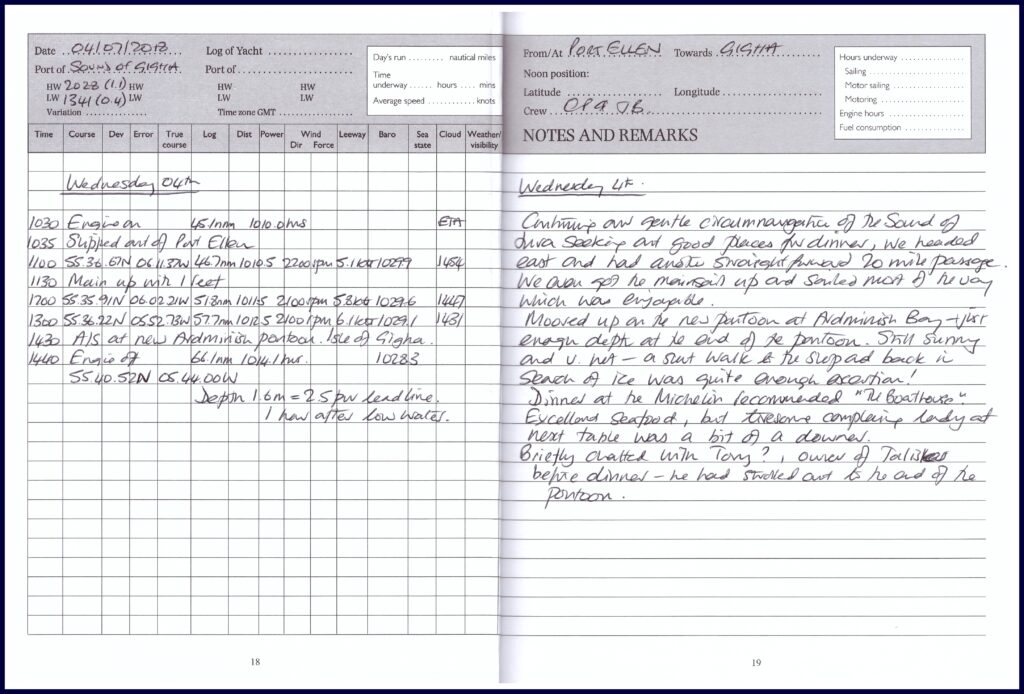 Date 04/07/2018 Log of Yacht
Port of SOUND OF GIGHA Port of
HW 2028 (1.1) HW HW HW
LW 1341 (0.4) LW LW LW
Variation Time zone GMT
Day's run nautical miles
Time
underway hours mins
Average speed knots
Time Course Dev Error True course Log Dist Power Wind Dir Force Leeway Baro Sea state Cloud Weather/ visibility
Wednesday 04th
1030 Engine on 45.1nm 1010.0hrs ETA
1035 Slipped out of Port Ellen
1100 55.36.67N 06.11.37W 46.7nm 1010.5 2200rpm 5.1kts 1029.9 1454
1130 Main up with 1 reef
1200 55.35.91N 06.02.21W 51.8nm 1011.5 2100rpm 5.8kts 1029.6 1447
1300 55.36.22N 05.52.73W 57.7nm 1012.5 2100rpm 6.1kts 1029.1 1431
1430 A/S at new Ardminish pontoon. Isle of Gigha.
1440 Engine off 66.1nm 1014.1hrs. 1028.3
55.40.52N 05.44.00W
Depth 1.6m = 2.5 pw lead line.
1 hour after low water.
18
From/At PORT ELLEN Towards GIGHA
Noon position:
Latitude Longitude
Crew JB.
NOTES AND REMARKS
Hours underway
Sailing
Motor sailing
Motoring
Engine hours
Fuel consumption
Wednesday 4th.
Continuing our gentle circumnavigation of the Sound of
Jura seeking out good places for dinner, we headed
east and had another straightforward 20 mile passage.
We even got the mainsail up and sailed most of the way
which was enjoyable.
Moored up on the new pontoon at Ardminish Bay - just
enough depth at the end of the pontoon. Still sunny
and v. hot - a short walk to the shop and back in
search of ice was quite enough exertion!
Dinner at the Michelin recommended "The Boathouse".
Excellent seafood, but tiresome complaining lady at
next table was a bit of a downer.
Briefly chatted with Tony?, owner of Talisker
before dinner - he had strolled out to the end of the
pontoon.
19